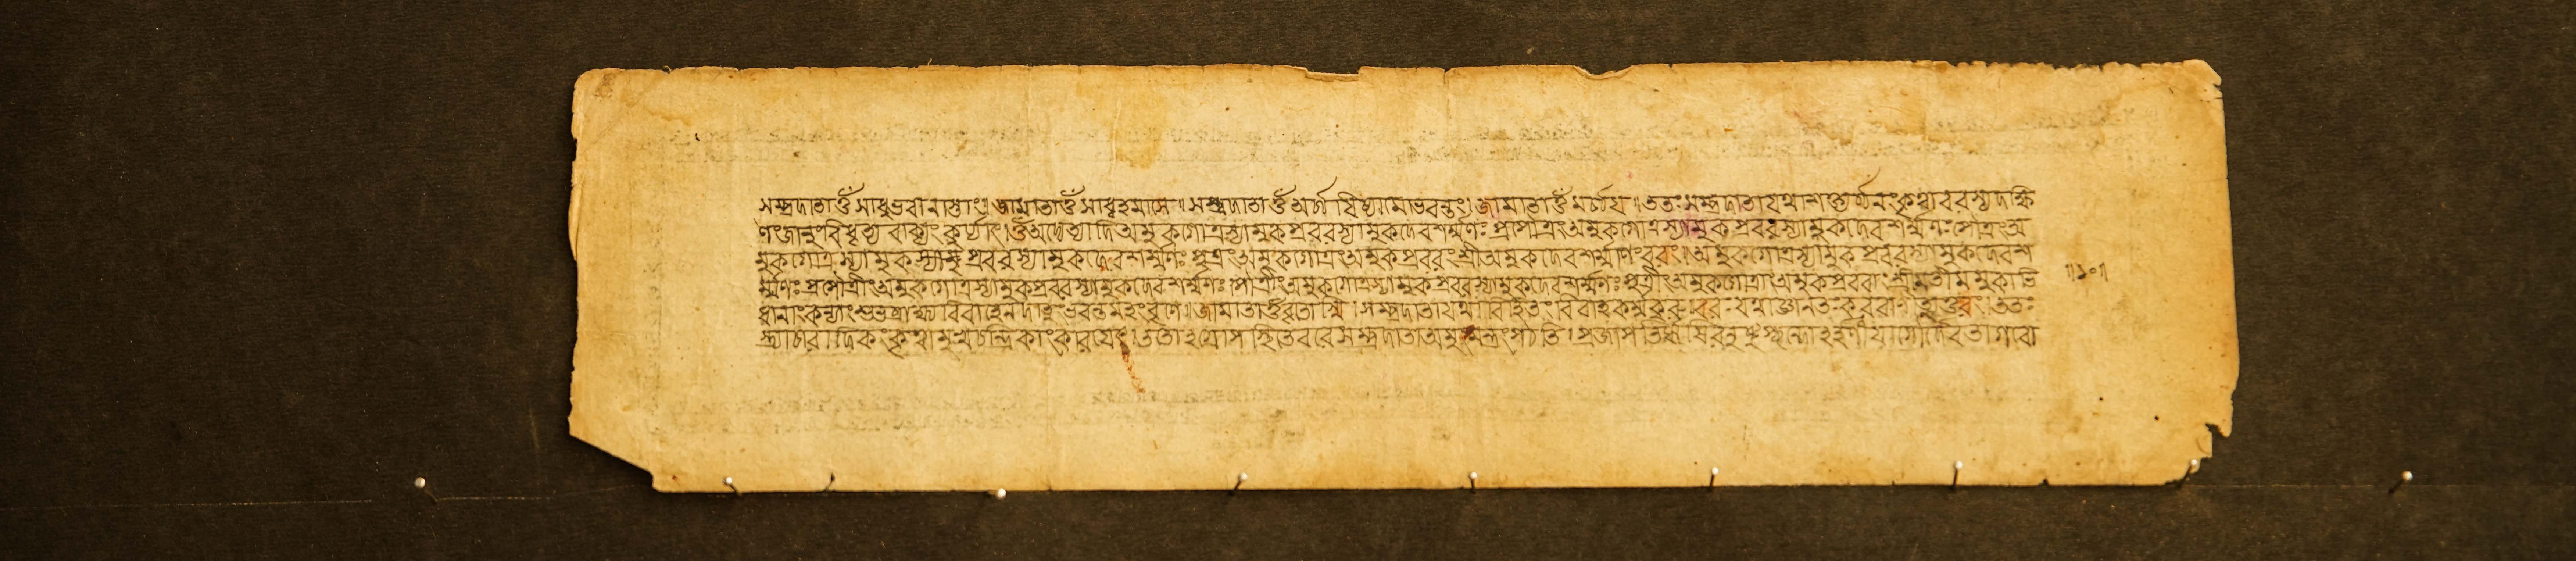 সম্প্রদাতা ওঁ সাধুভবানাস্তাং। জামাতা ওঁ সাধ্বহমাসে। সম্প্রদাতা ওঁ অর্চ্চয়িষ্যামো ভবন্তং। জামাতা ওঁ অর্চ্চয়। ততঃ সম্প্রদাতা কৃত্বা বরস্য দক্ষি
ণং জানু বিধৃত্য বাক্যং কুর্য্যাৎ। ওঁ অদ্যেত্যাদি অমুকগোত্রস্যামুকপ্রবরস্যামুকদেবশর্ম্মণঃ প্রপৌত্রং অমুকগোত্রস্যামুকপ্রবরস্যামুকদেবশর্ম্মণঃ পৌত্রং অ
মুকগোত্রস্যামুকপ্রবরস্যামুকদেবশর্ম্মণঃ পুত্রং অমুকগোত্রং অমুকপ্রবরং শ্রীঅমুকদেবশর্ম্মাণং বরং। অমুকগোত্রস্যামুকপ্রবরস্যামুকদেবশ
র্ম্মণঃ প্রপৌত্রীং অমুকগোত্রস্যামুকপ্রবরস্যামুকদেবশর্ম্মণঃ পৌত্রীং অমুকগোত্রস্যামুকপ্রবরস্যামুকদেবশর্ম্মণঃ পুত্রীং অমুকগোত্রাং অমুকপ্রবরাং শ্রীমতীমমুকাভি
ধানাং কন্যাং শুভব্রাহ্ম্যবিবাহেন দাতুং ভবন্তমহং বৃণে। জামাতা ওঁ বৃতোস্মি। সম্প্রদাতা যথাবিহিতং বিবাহকর্ম্ম কুরু। বরঃ যথাজ্ঞানতঃ করবাণি ততঃ
স্ত্র্যাচারাদিকং কৃত্বা মুখচন্দ্রিকাং কারয়েৎ। ততো সম্প্রদাতা পঠতি। প্রজাপতিরৃষিরনুষ্টুপ্ছন্দো
॥১০॥